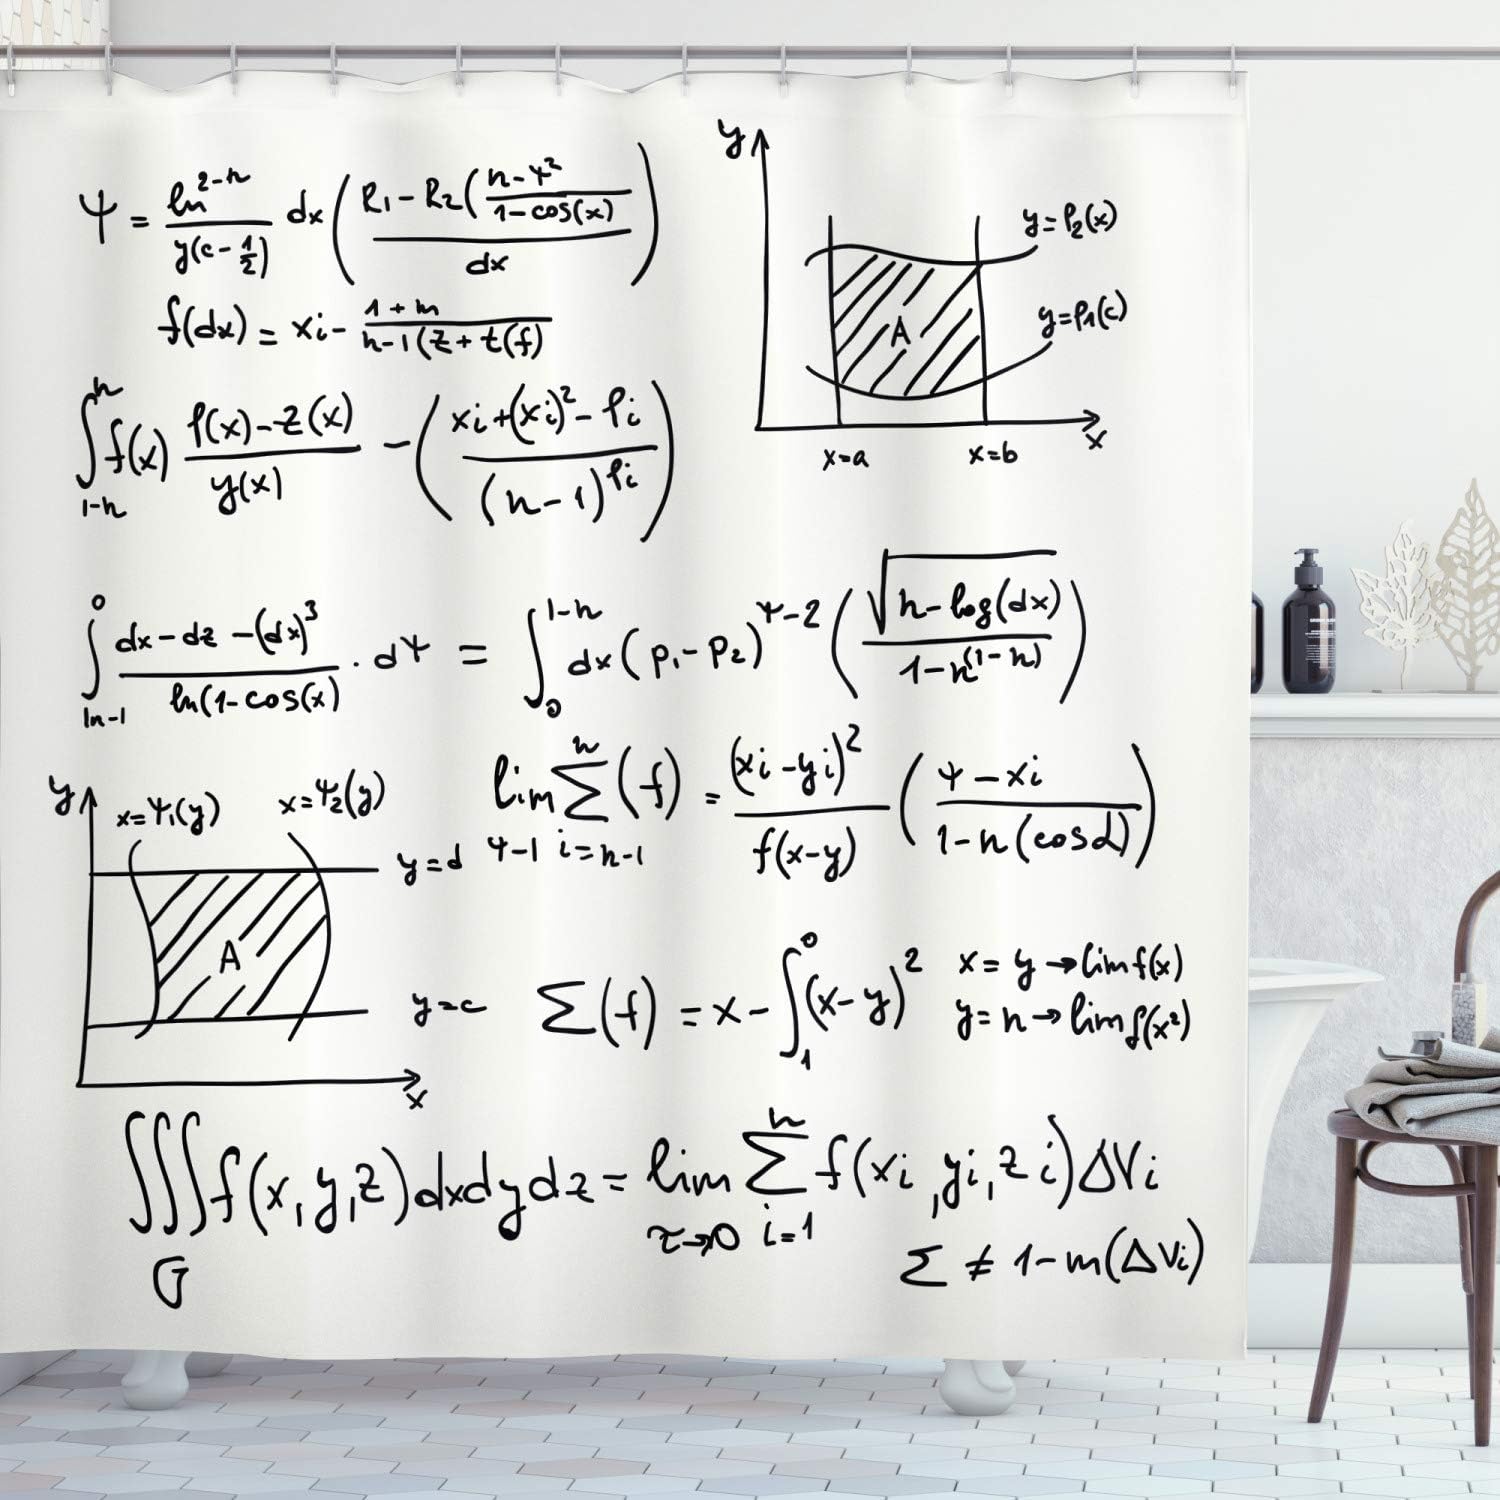 ψ = ln^(2-n) / y(c - 1/2) dx ( R₁ - R₂( n-ψ² / 1-cos(x) ) / dx )
f(dx) = xi - 1+m / n-1(z+t(f)
∫_{1-n}^{n} f(x) p(x)-z(x) / y(x) - ( xi+(xi)² - Pi / (n-1)^{Pi} )
y
y=P₂(x)
y=P₁(c)
A
x=a x=b x
∫_{ln-1}^{0} dx-dz-(dx)³ / ln(1-cos(x) · dψ = ∫_{0}^{1-n} dx(p₁-p₂)^{ψ-2} ( √n-log(dx) / 1-n^{(1-n)} )
lim_{ψ-1} Σ_{i=n-1}^{n} (f) = (xi-yi)² / f(x-y) ( ψ-xi / 1-n(cosα) )
y
x=ψ₁(y) x=ψ₂(y)
y=d
A
y=c
x
Σ(f) = x - ∫_{1}^{0} (x-y)²
x = y → lim f(x)
y = n → lim f(x²)
∫∫∫_G f(x,y,z)dxdydz = lim_{τ→0} Σ_{i=1}^{n} f(xi,yi,zi)ΔVi
Σ ≠ 1-m(ΔVi)